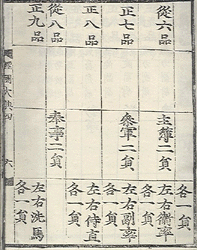 從六品
正七品
正八品
從八品
正九品
主簿二員
參軍二員
奉事二員
各一員
左右衛率
各一員
左右副率
各一員
左右侍直
各一員
左右洗馬
各一員
經國大典四
六